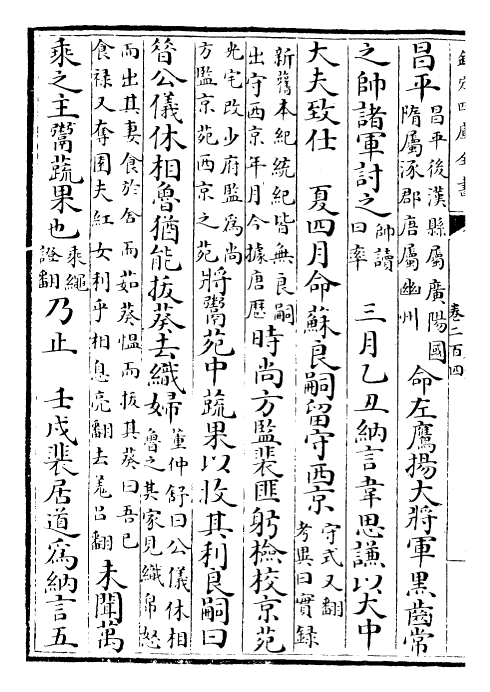 欽定四庫全書
卷二百四
昌平昌平後漢縣屬廣陽國隋屬涿郡唐屬幽州命左鷹揚大將軍黑齒常
之帥諸軍討之帥讀曰率 三月乙丑納言韋思謙以大中
大夫致仕 夏四月命蘇良嗣留守西京守式又翻考異曰實錄
新舊本紀統紀皆無良嗣出守西京年月今據唐歴時尚方監裴匪躬檢校京苑
光宅改少府監爲尚方監京苑西京之苑將鬻苑中蔬果以收其利良嗣曰
昔公儀休相魯猶能拔葵去織婦董仲舒曰公儀休相魯之其家見織帛怒
而出其妻食於舍而茹葵愠而拔其葵曰吾已食禄又奪園夫紅女利乎相息亮翻去羌吕翻未聞萬
乘之主鬻蔬果也乘繩證翻乃止 壬戌裴居道爲納言五